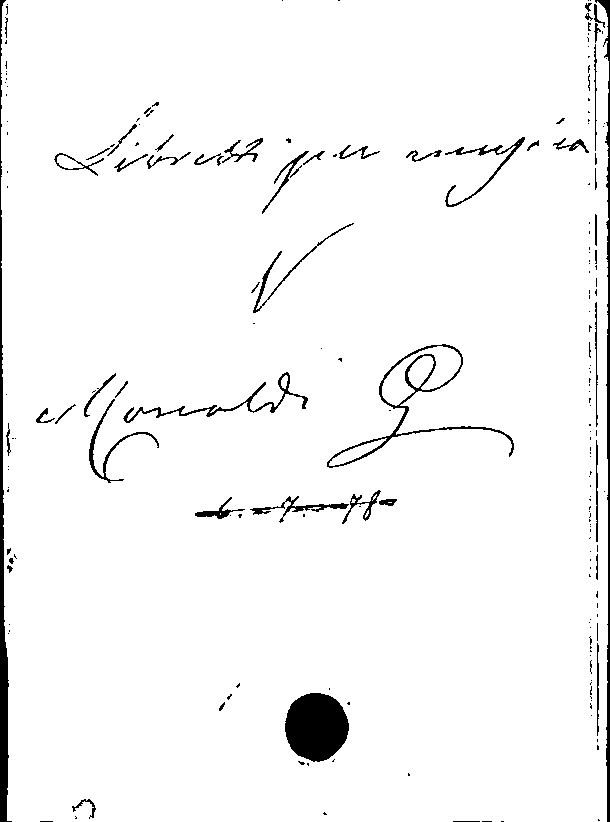 Libretti per musica
V
Moscaldi G
6. - 7. - 78